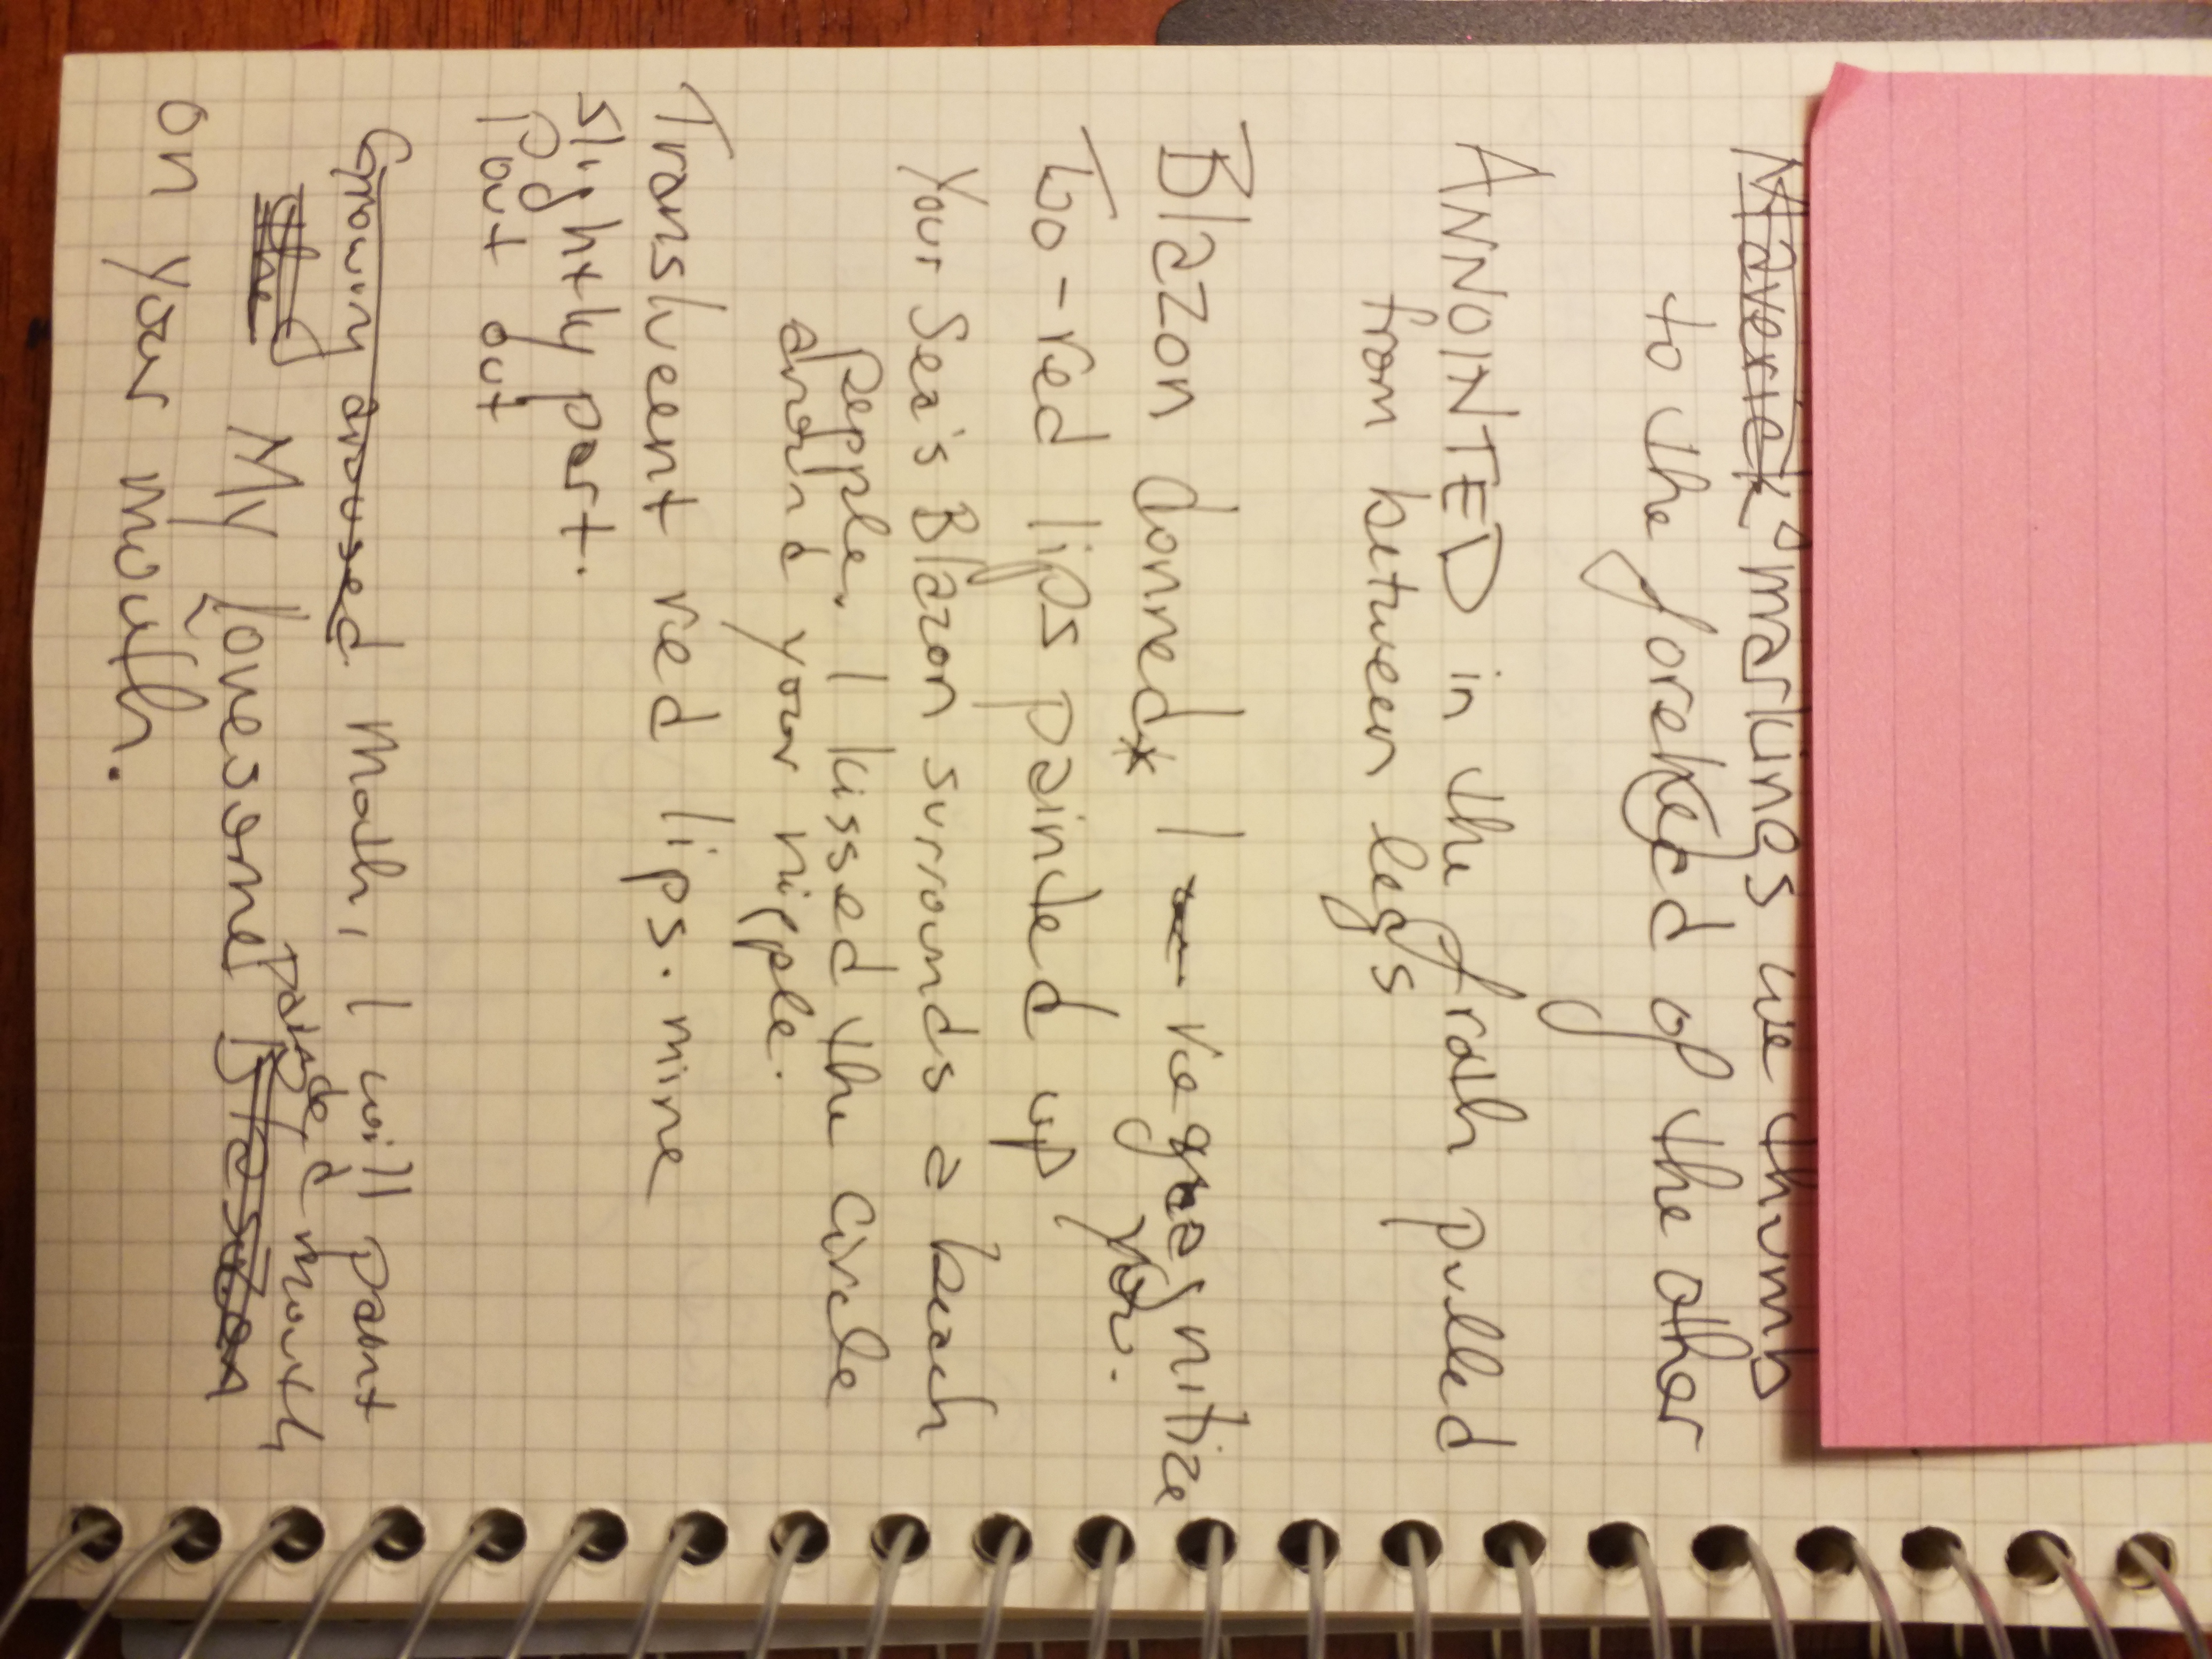 Maverick markings we thumb
to the forehead of the other
ANNOINTED in the froth pulled
from between legs
Blazon donned* I recognitize
Too-red lips painded up for you.
Your Sea's Blazon surrounds a beach
pepple. I kissed the circle
around your nipple.
Transluent red lips. mine
slightly part.
pout out
Growing aroused Moth, I will pant
the painded mouth
My lonesome
on your mouth.